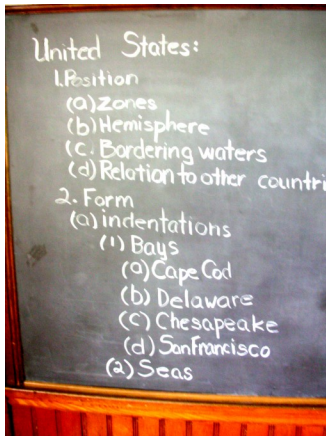 United States:
1. Position
(a) Zones
(b) Hemisphere
(c. Bordering waters
(d) Relation to other countri
2. Form
(a) indentations
(1) Bays
(a) Cape Cod
(b) Delaware
(c) Chesapeake
(d) San Francisco
(2) Seas